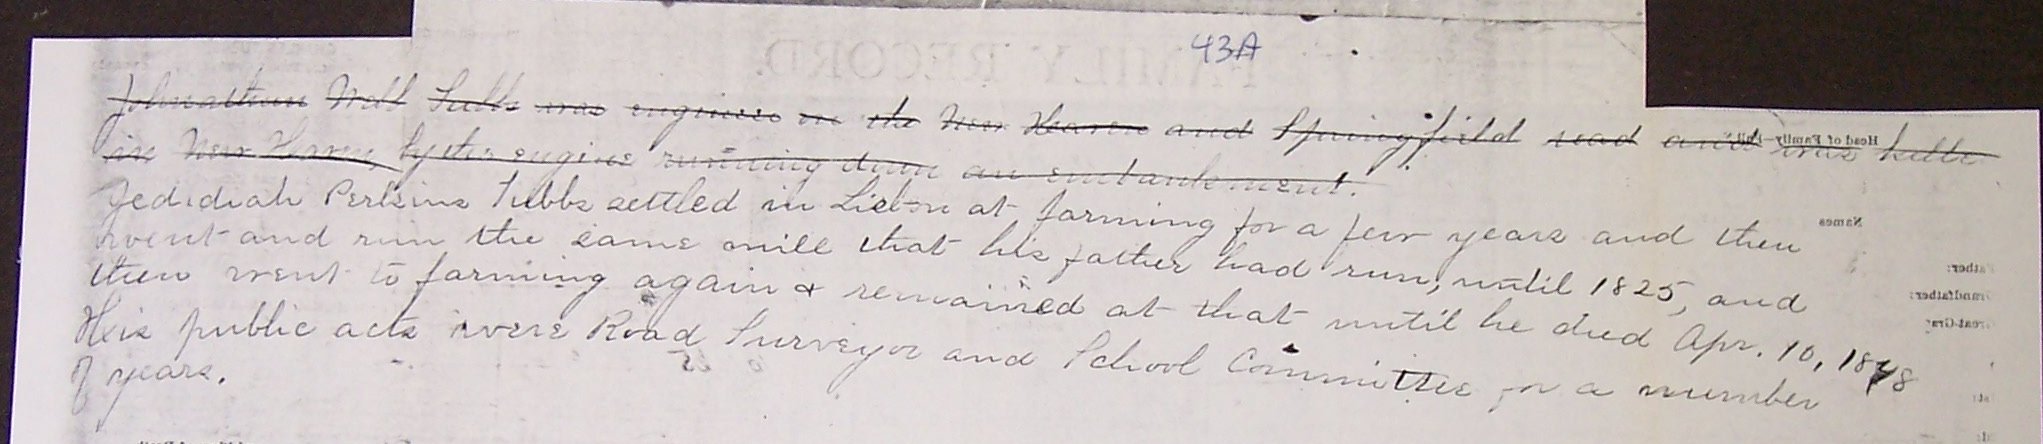 43A
FAMILY RECORD.
Johnathan Nell Tubbs was engineer on the New Heaven and Springfield road and was kille
in New Heaven by the engine running down an embankment.
Jedidiah Perkins Tubbs settled in Lisbon at farming for a few years and then
went and run the same mill that his father had run, until 1825, and
then went to farming again & remained at that until he died Apr. 10, 1848
His public acts were Road Surveyor and School Committee for a number
of years.
Head of Family
Names
Father:
Grandfather: